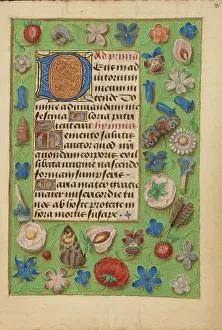 Ad primã
Deus in ad
iutorium
meum in
tende Do
mine ad adiuuandum me
festina Gloria patri
hymnus
Memento salutis
auctor quod nr̃i
quondam corporis ex illi
bata virgine nascendo
formam sumpseris
Maria mater gracie
mater misericordie tu
nos ab hoste protege in
hora mortis suscipe